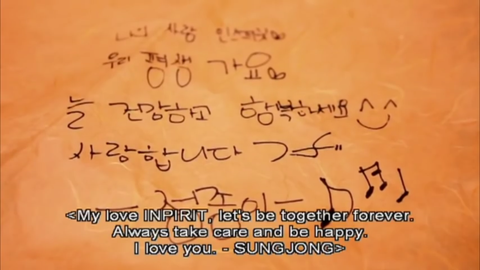 나의 사랑
우리 평생 가요
늘 건강하고 행복하세요
사랑합니다
- 성종이 -
<My love INPIRIT, let's be together forever.
Always take care and be happy.
I love you. - SUNGJONG>